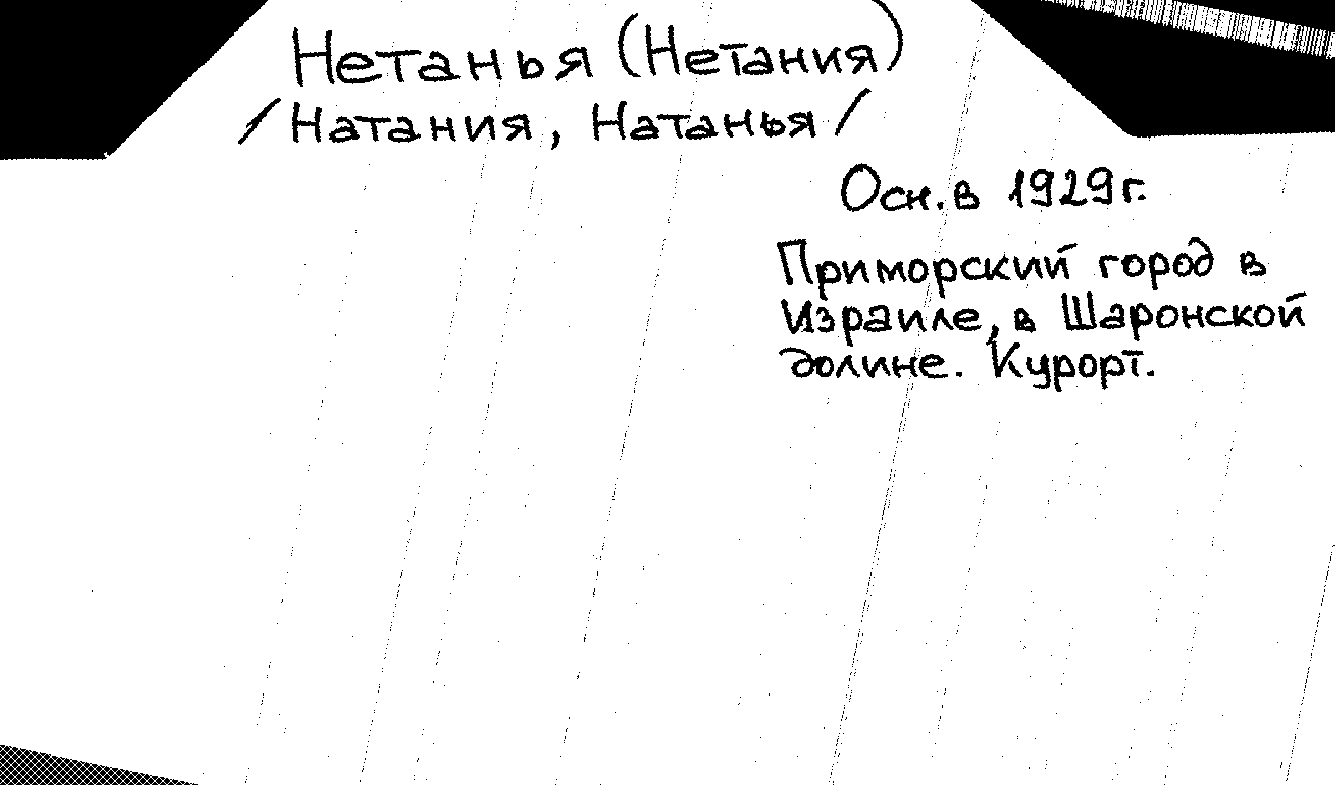 Нетанья (Нетания)
/Натания, Натанья/
Осн. в 1929г.
Приморский город в
Израиле, в Шаронской
долине. Курорт.